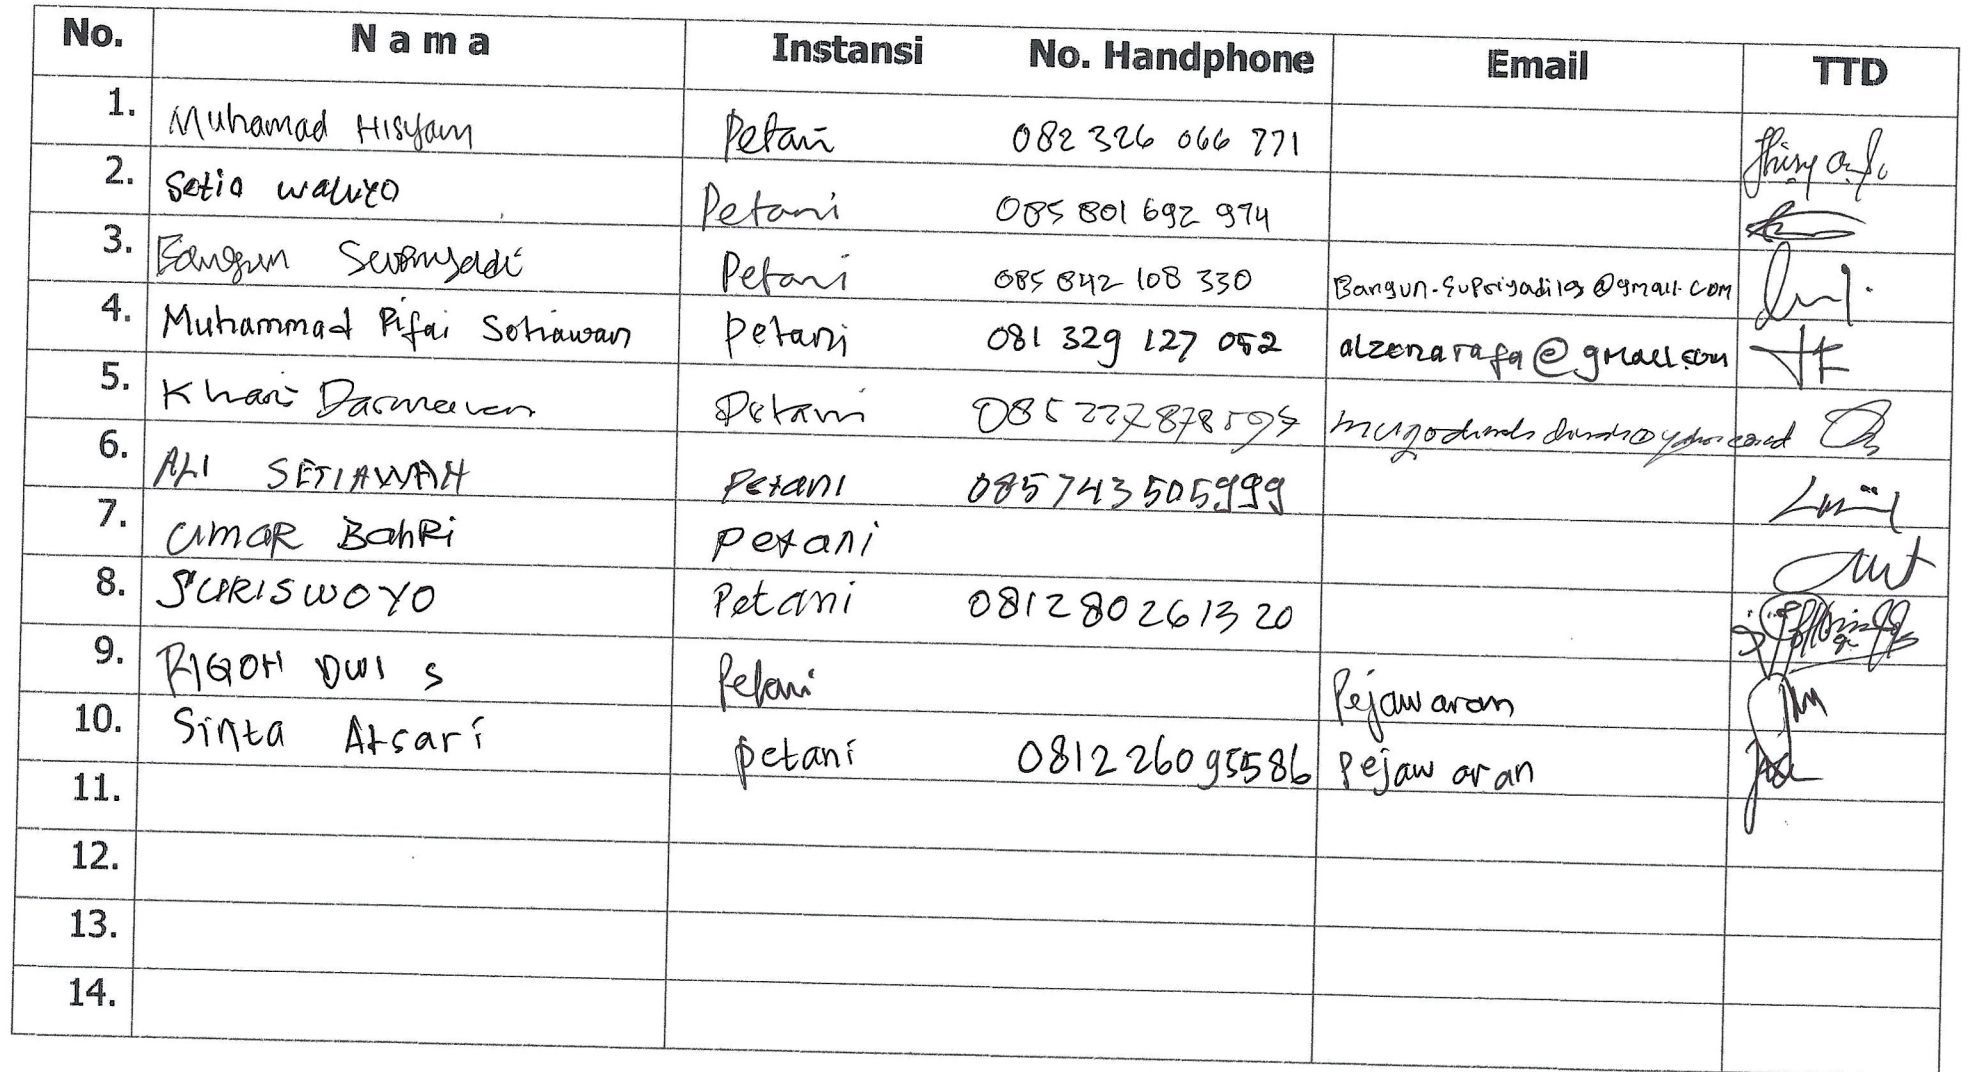 No. N a m a Instansi No. Handphone Email TTD
1. Muhamad Hisyam Petani 082 326 066 771
2. Setio waluyo Petani 085 801 692 974
3. Bangun Supriyadi Petani 085 842 108 330 Bangun.Supriyadi19@gmail.com
4. Muhammad Rifai Setiawan Petani 081 329 127 052 alzenarafa@gmail.com
5. Khairi Darmawan Petani
6. ALI SETIAWAN Petani 085743505999
7. UMAR BahRi petani
8. SURISWOYO Petani 081280261320
9. DWI S Petani Pejawaran
10. Sinta Atsari petani 081226095586 Pejawaran
11.
12.
13.
14.